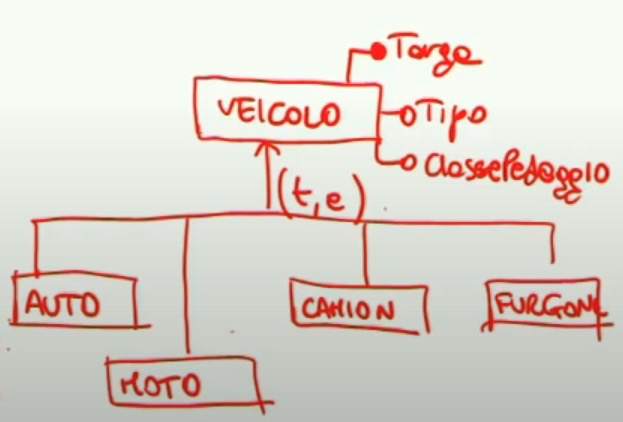 Targa
VEICOLO
Tipo
ClassePedaggio
(t,e)
AUTO
CAMION
FURGONE
MOTO